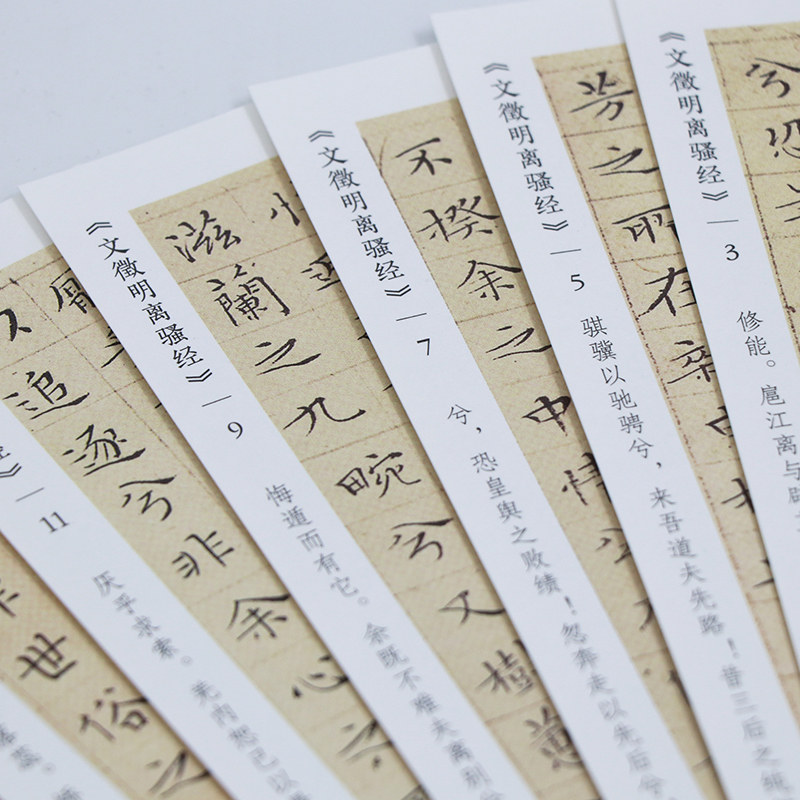 《文徵明离骚经》—3 修能。扈江离与辟
兮恐
《文徵明离骚经》—5 骐骥以驰骋兮，来吾道夫先路！昔三后之纯
芳之所在
《文徵明离骚经》—7 兮，恐皇舆之败绩！忽奔走以先后兮
不揆余之中情兮
《文徵明离骚经》—9 悔遁而有它。余既不难夫离别兮
滋蘭之九畹兮又樹蕙
—11 厌乎求索。羌内恕己以
追逐兮非余心之
世俗之